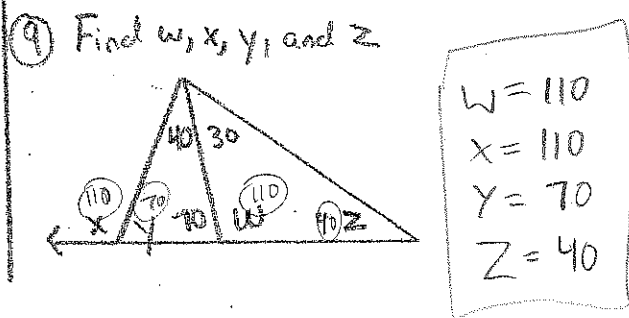 9 Find w, x, y, and z
40 30
110 70 110
X Y 70 W 40 Z
W = 110
X = 110
Y = 70
Z = 40